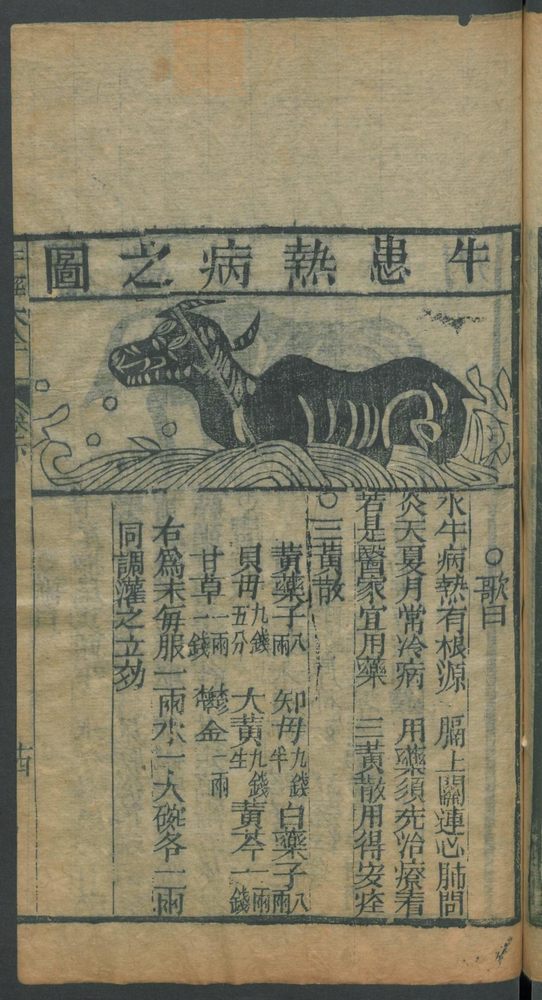 牛患熱病之圖
○歌曰
水牛病熱有根源　膈上關連心肺問
炎天夏月常冷病　用藥須先治療看
若是醫家宜用藥　三黃散用得安痊
○三黃散
黃藥子八兩　知母九錢半　白藥子八兩
貝母九錢五分　大黃九錢生　黃芩一兩一錢
甘草一兩一錢　欝金二兩
右為末毎服二兩水一大碗各二兩
同調灌之立効